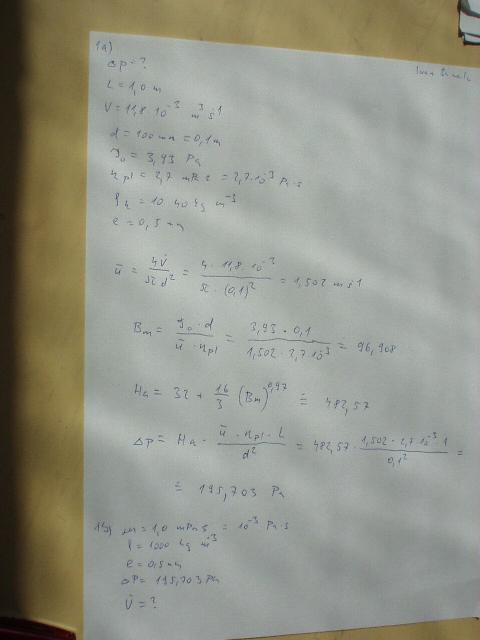 1a)
Δp = ?
L = 1,0 m
V̇ = 11,8·10⁻³ m³ s⁻¹
d = 100 mm = 0,1 m
τ₀ = 3,93 Pa
η_pl = 2,7 mPa·s = 2,7·10⁻³ Pa·s
ρ_k = 1040 kg m⁻³
e = 0,5 mm
ū = 4V̇/πd² = 4·11,8·10⁻³/π·(0,1)² = 1,502 m s⁻¹
Bm = τ₀·d/ū·η_pl = 3,93·0,1/1,502·2,7·10⁻³ = 96,908
Ha = 32 + 16/3 (Bm)^0,97 ≐ 482,57
Δp = Ha · ū·η_pl·L/d² = 482,57 · 1,502·2,7·10⁻³·1/0,1² =
≐ 195,703 Pa
1b) μ = 1,0 mPa·s = 10⁻³ Pa·s
ρ = 1000 kg m⁻³
e = 0,5 mm
ΔP = 195,703 Pa
V̇ = ?